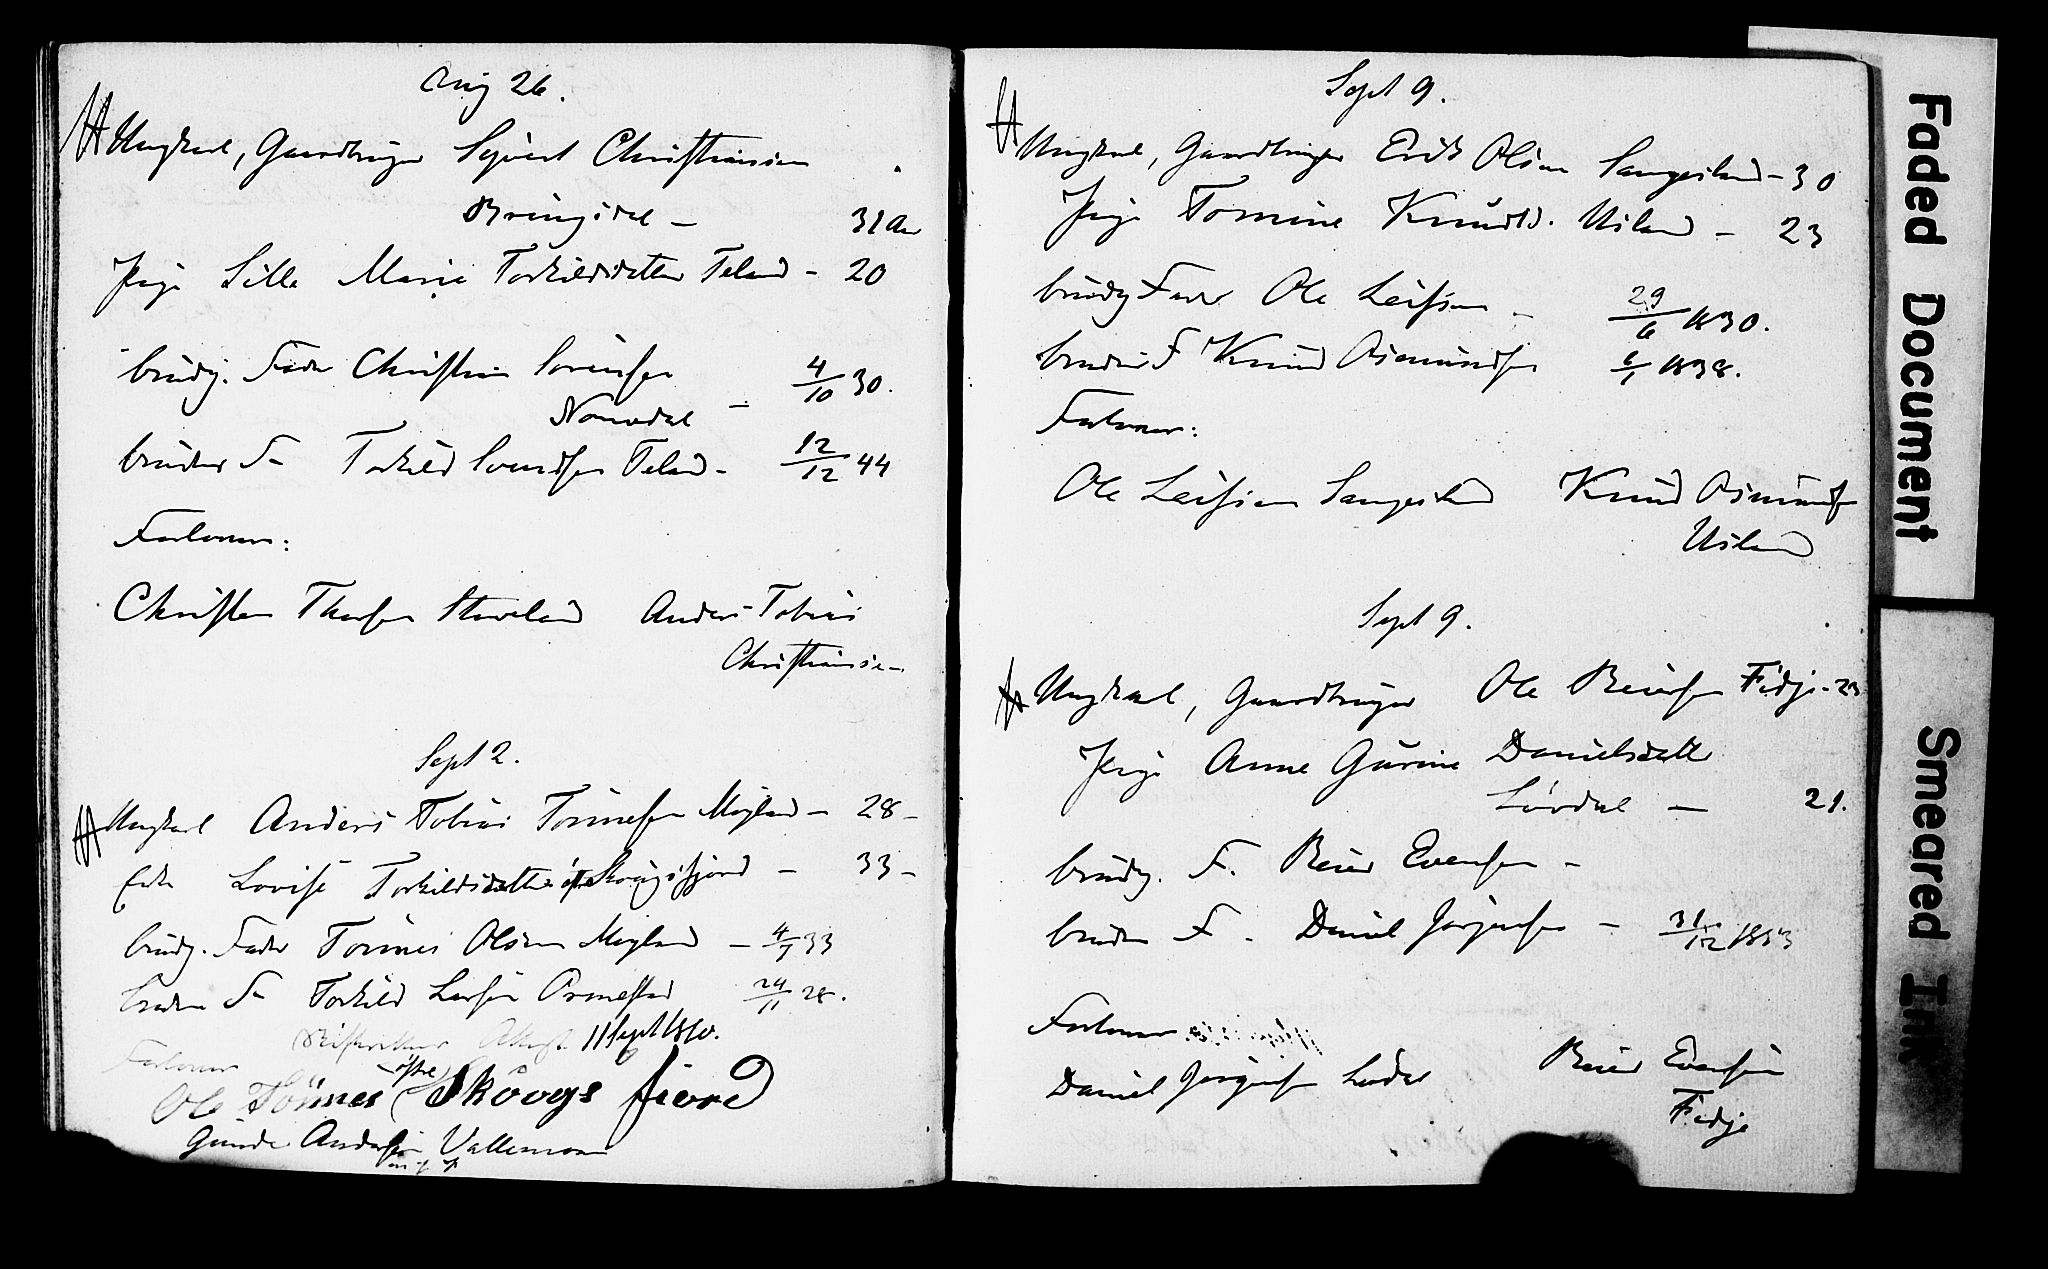 Aug 26.
Ungkarl, Gaardbruger Sjivert Christiansen
Bringsdal – 31 Aar
Pige Sille Marie Torkildsdatter Teland – 20
brudg. Fader Christen Sørensen
Nomedal – 4/10 30.
brudens Fa Torkild Svendsen Teland – 12/12 44
Forlovere:
Christen Thorsen Staveland Anders Tobias
Christiansen
Sept 2.
Ungkarl Anders Tobias Tønnesen Møgland – 28 –
Enke Lovise Torkildsdatter Skougsfjord – 33 –
brudg. Fader Tønnes Olsen Møgland – 4/5 33
brudens Fa Torkild Larsen Ormestad 24/11 28.
Skifteretten Attest 11 Sept 1860.
Forlovere
Ole Tönnes (öfre) Skovgs fiord
Gunde Andersen Vallemoen
Sept 9.
Ungkarl, Gaardbruger Erik Olsen Sangesland – 30
Pige Tomine Knudsd. Usland – 23
brudg Fader Ole Leifsen – 29/6 1830.
brudens F Knud Osmundsen 6/1 1838.
Forlovere:
Ole Leifsen Sangesland Knud Osmundsen
Usland
Sept 9.
Ungkarl, Gaardbruger Ole Reiersen Fidje – 23
Pige Anne Gurine Danielsdatter
Lørdal – 21.
brudg. F. Reier Evensen –
brudens F. Daniel Jørgensen – 31/12 1853
Forlovere
Daniel Jørgensen Lørdal Reier Evensen
Fidje
Faded Document
Smeared Ink